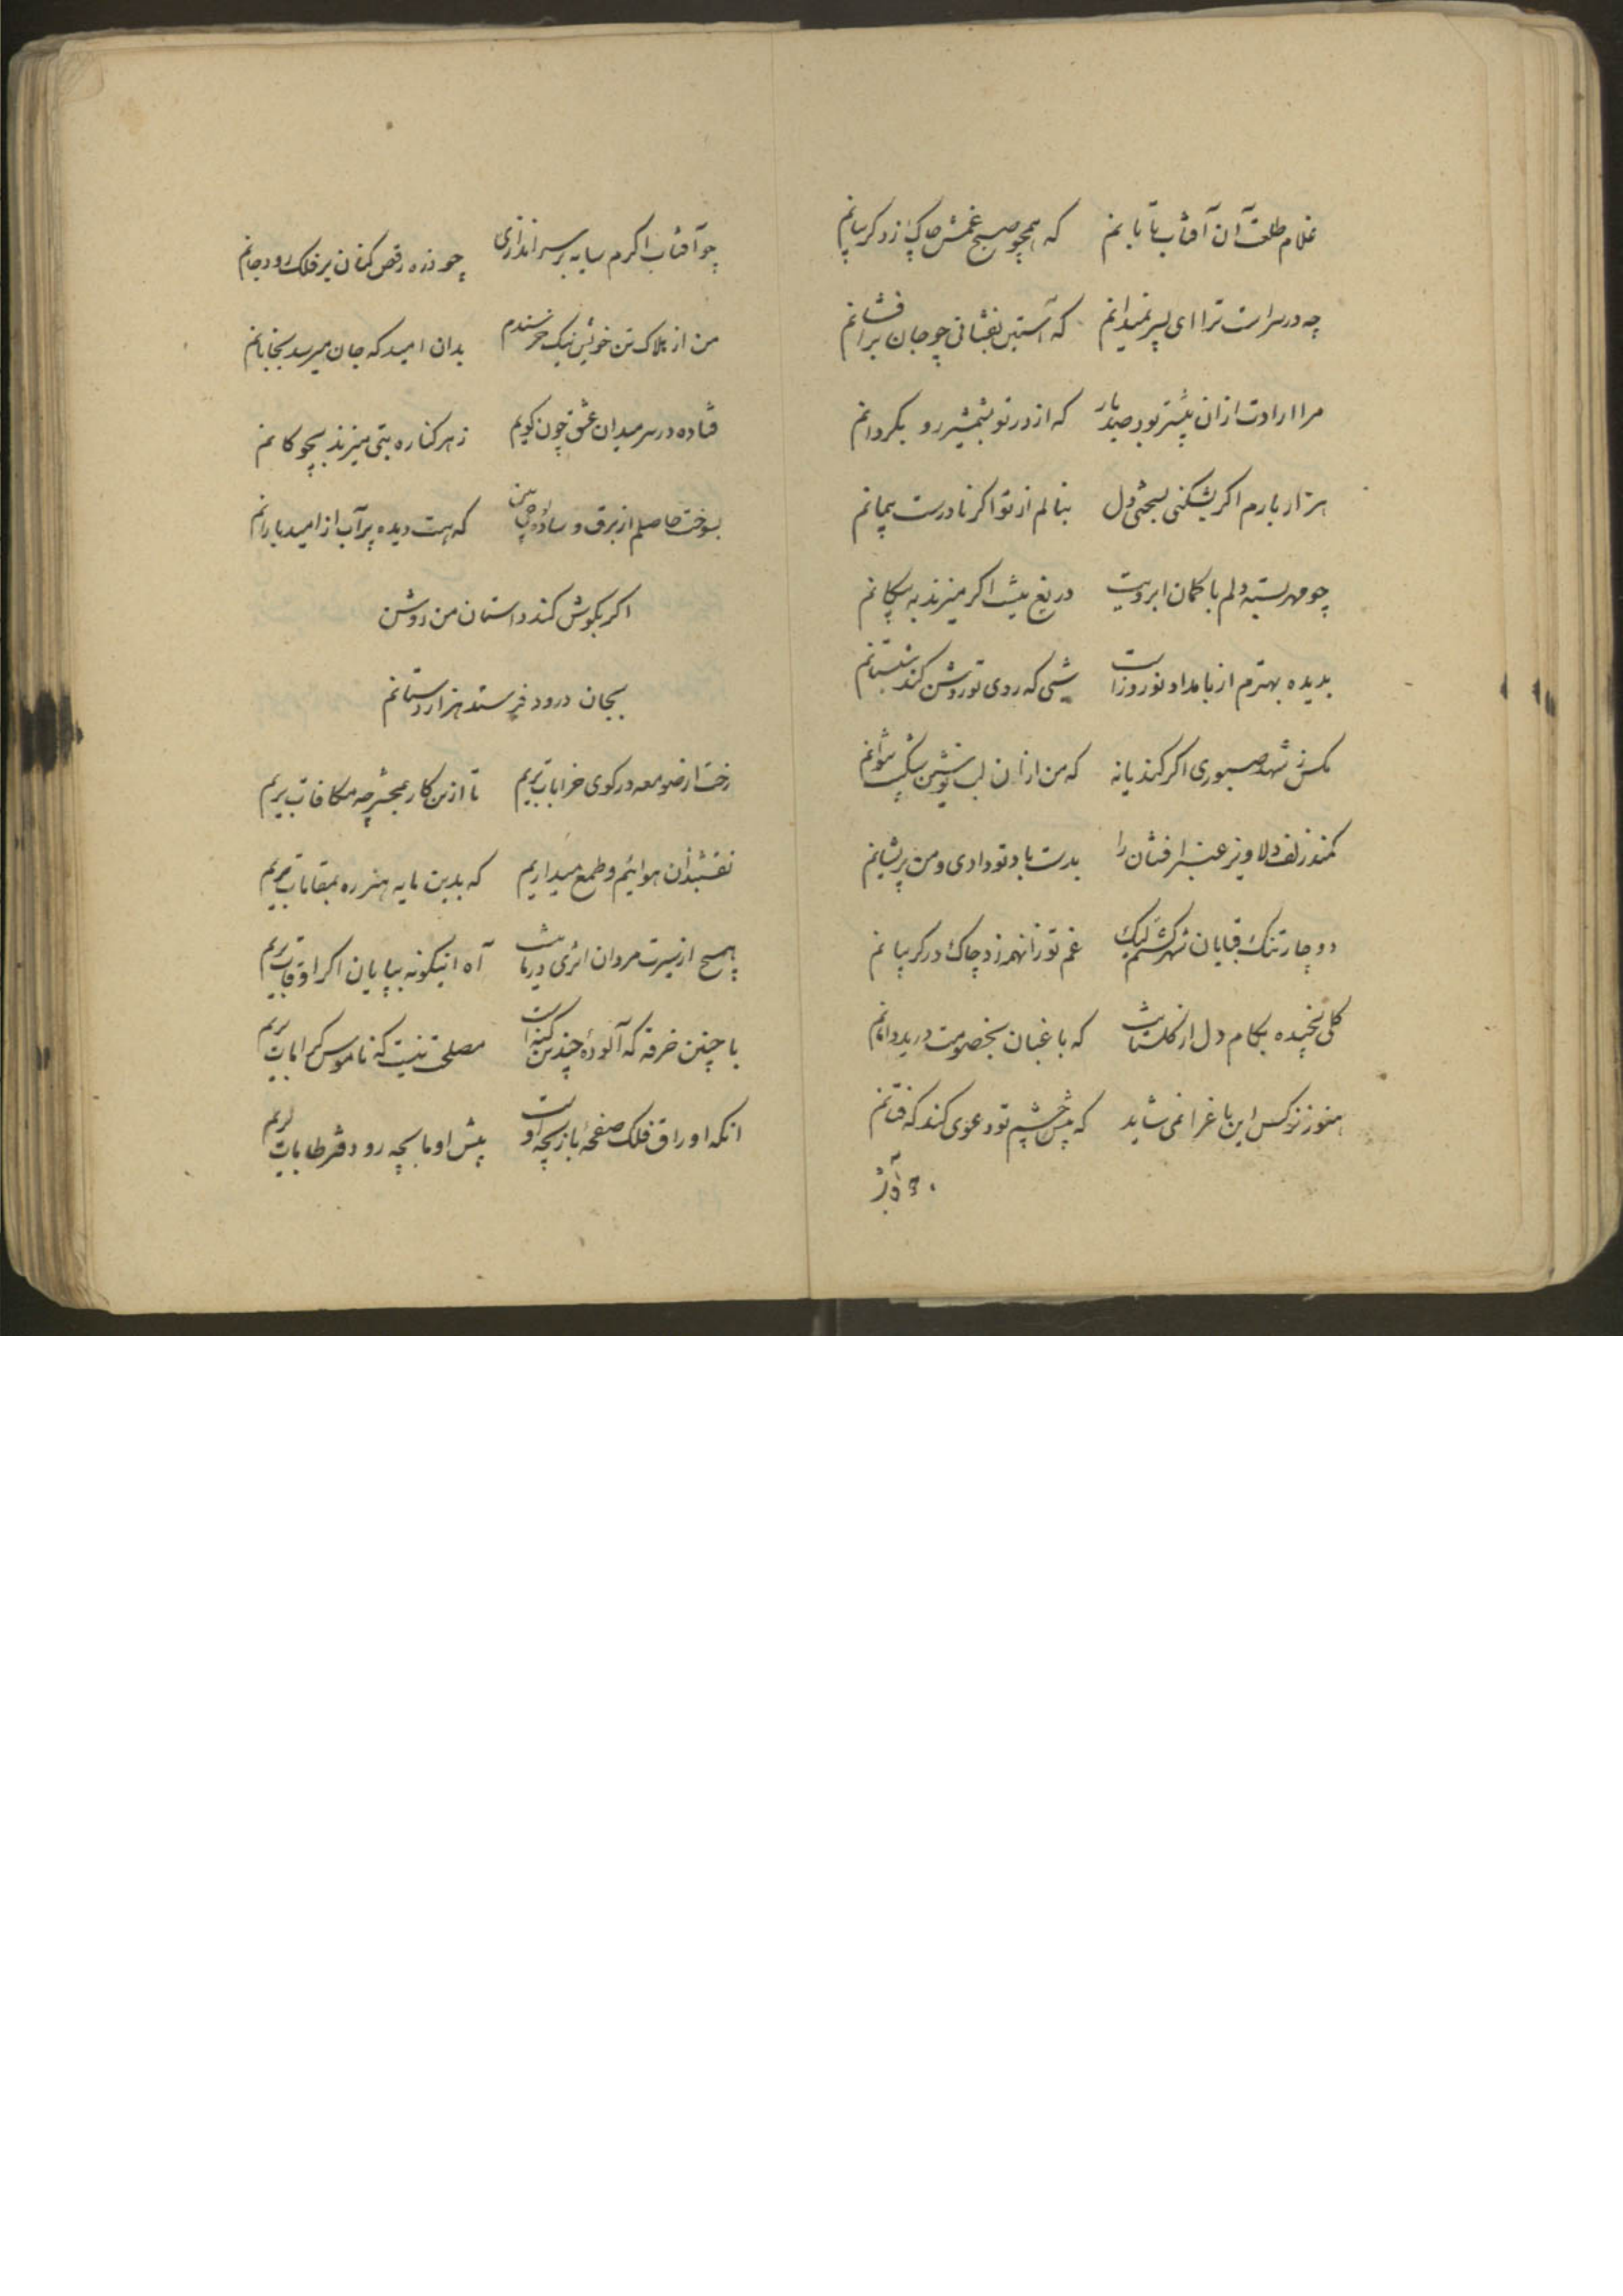 غلام طلعت آن آفتاب تابانم که همچو صبح غمش چاک زد کریبانم
چه در سراست ترا ای پسر نمیدانم که آستین بفشانی چو جان برافشانم
مرا ارادت ازان پیشتر بود صدبار که از در تو بشمشیر رو بکردانم
هزار بارم اکر بشکنی بسختی دل بنالم از تو اکر نادرست پیمانم
چو مهر بسته دلم با کمان ابرویت دریغ نیست اکر میزند به پیکانم
بدیده بهترم از بامداد نوروزاست شبی که روی تو روشن کند شبستانم
مکس ز شهد صبوری اکر کند یا نه که من ازان لب نوشین شکیب نتوانم
کمند زلف دلاویز عنبرافشان را بدست باد تو دادی و من پریشانم
دوچار تنک قبایان شهر کشتم لیک غم تو زانهمه زد چاک در کریبانم
کلی نچیده بکام دل از کلستانت که باغبان بخصومت درید دامانم
هنوز نرکس این باغرا نمی شاید که پیش چشم تو دعوی کند که فتانم
چو آفتاب اکرم سایه بر سر اندازی چو ذره رقص کنان بر فلک رود جانم
من از هلاک تن خویش نیک خرسندم بدان امید که جان میرسد بجانانم
فتاده در سر میدان عشق چون کویم ز هر کناره بتی میزند بچوکانم
بسوخت حاصلم از برق و ساده‌لوحی بین که هست دیده پرآب از امید بارانم
اکر بکوش کند داستان من روشن
بجان درود فرستد هزاردستانم
رخت از صومعه در کوی خرابات بریم تا ازین کار بمحشر چه مکافات بریم
نقشبندان هوائیم و طمع میداریم که بدین مایه هنر ره بمقامات بریم
هیچ از سیرت مردان اثری در ما نیست آه اینکونه بپایان اکر اوقات بریم
با چنین خرقه که آلودهٔ چندین کنه است مصلحت نیست که ناموس کرامات بریم
انکه اوراق فلک صفحهٔ بازیچه اوست پیش او ما بچه رو دفتر طامات بریم